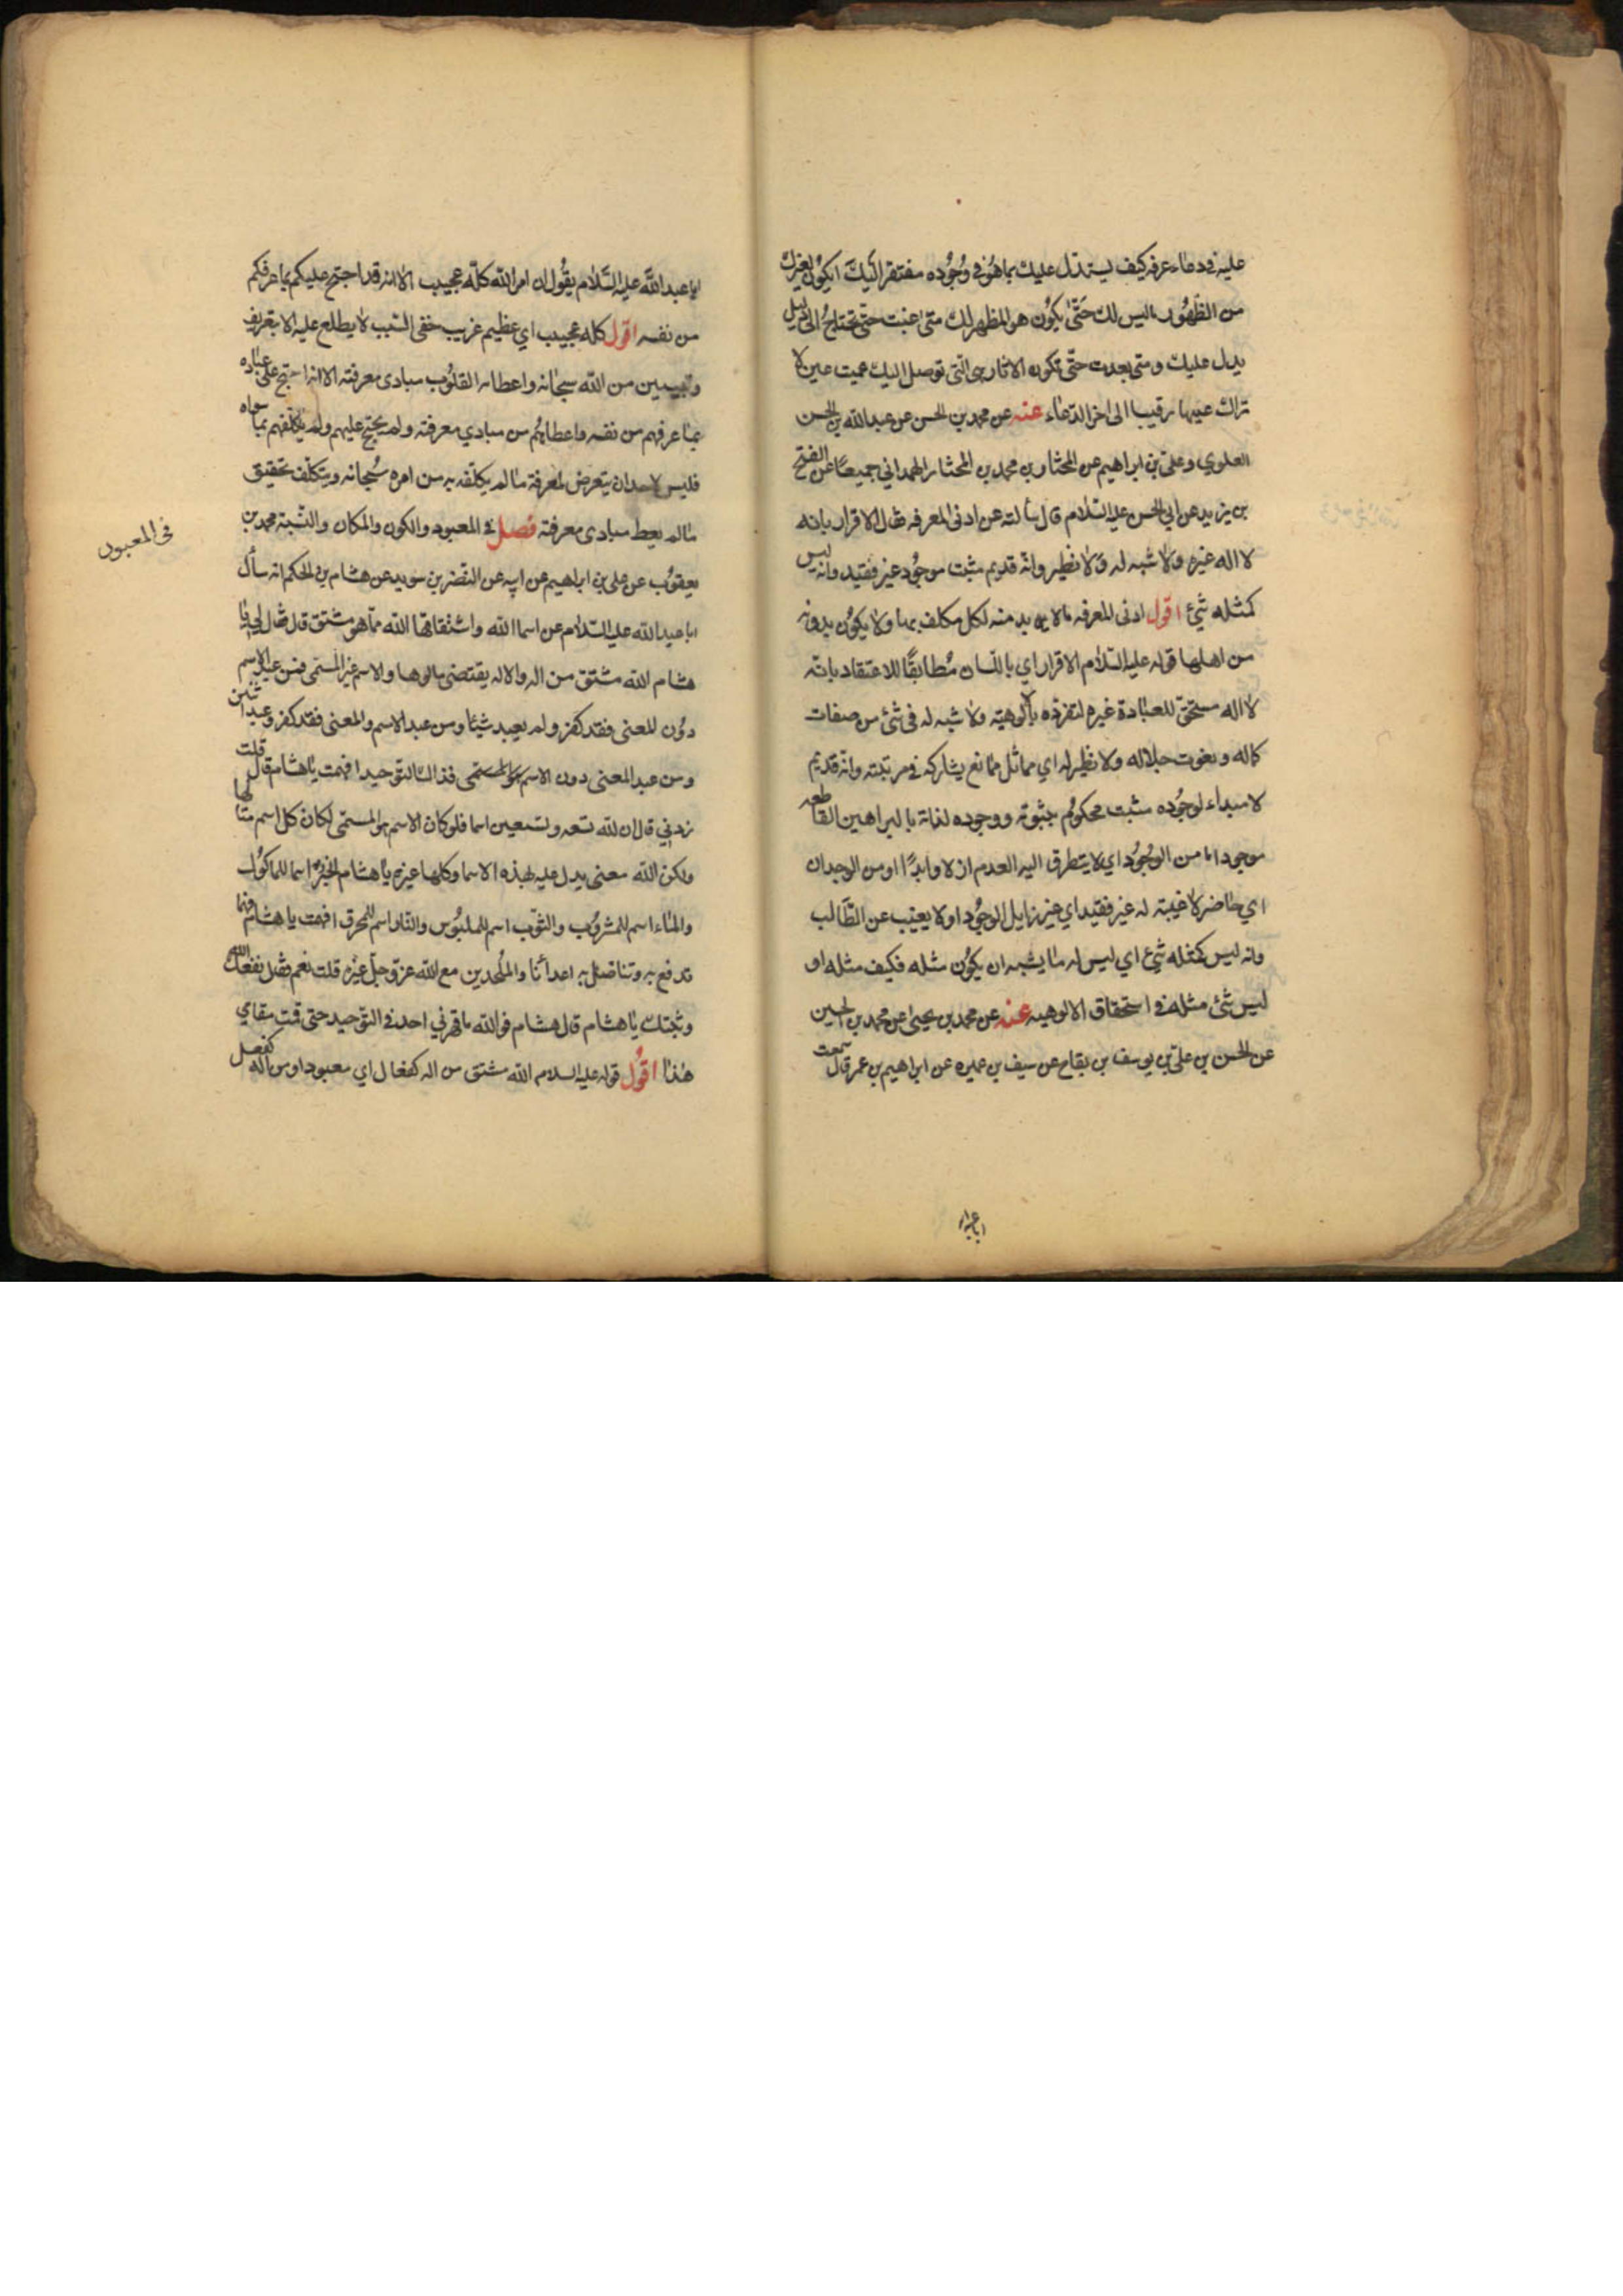 عليه في دعاء عرفه كيف يستدل عليك بما هو في وجوده مفتقر اليك ايكون لغيرك
من الظهور ما ليس لك حتى يكون هو المظهر لك متى غبت حتى تحتاج الى دليل
يدل عليك ومتى بعدت حتى تكون الاثار هي التي توصل اليك عميت عين لا
تراك عليها رقيبا الى اخر الدعاء عنه عن محمد بن الحسن عن عبد الله بن الحسن
العلوي وعلي بن ابراهيم عن المختار بن محمد بن المختار الهمداني جميعا عن الفتح
بن يزيد عن ابي الحسن عليه السلام قال سألته عن ادنى المعرفه فقال الاقرار بانه
لا اله غيره ولا شبه له ولا نظير وانه قديم مثبت موجود غير فقيد وانه ليس
كمثله شئ اقول ادنى المعرفه ما لا بد منه لكل مكلف بها ولا يكون بدونه
من اهلها قوله عليه السلام الاقرار اي باللسان مطابقا للاعتقاد بانه
لا اله مستحق للعبادة غيره لتفرده بألوهيته ولا شبه له في شئ من صفات
كماله ونعوت جلاله ولا نظير له اي مماثل ممانع يشاركه في مرتبته وانه قديم
لا مبداء لوجوده مثبت محكوم بثبوته ووجوده لذاته بالبراهين القاطعه
موجود اما من الوجود اي لا يتطرق اليه العدم ازلا وابدا او من الوجدان
اي حاضر لا غيبة له غير فقيد اي غير زايل الوجود او لا يغيب عن الطالب
وانه ليس كمثله شئ اي ليس له ما يشبه ان يكون مثله فكيف مثله او
ليس شئ مثله في استحقاق الالوهيه عنه عن محمد بن يحيى عن محمد بن الحسين
عن الحسن بن علي بن يوسف بن بقاح عن سيف بن عميره عن ابراهيم بن عمر قال سمعت
ابا عبد
ابا عبد الله عليه السلام يقول ان امر الله كله عجيب الا انه قد احتج عليكم بما عرفكم
من نفسه اقول كله عجيب اي عظيم غريب خفي السبب لا يطلع عليه الا بتعريف
وتبيين من الله سبحانه واعطاء القلوب مبادى معرفته الا انه احتج على عباده
بما عرفهم من نفسه واعطاهم من مبادي معرفته ولم يحتج عليهم ولم يكلفهم بما سواه
فليس لاحد ان يتعرض لمعرفة ما لم يكلفه به من امره سبحانه ويتكلف تحقيق
ما لم يعط مبادى معرفته فصل في المعبود والكون والمكان والنسبة محمد بن
يعقوب عن علي بن ابراهيم عن ابيه عن النضر بن سويد عن هشام بن الحكم انه سأل
ابا عبد الله عليه السلام عن اسما الله واشتقاقها الله مما هو مشتق قال فقال لي يا
هشام الله مشتق من اله والاله يقتضي مالوها والاسم غير المسمى فمن عبد الاسم
دون المعنى فقد كفر ولم يعبد شيئا ومن عبد الاسم والمعنى فقد كفر وعبد اثنين
ومن عبد المعنى دون الاسم فذاك التوحيد افهمت يا هشام قال قلت
زدني قال ان لله تسعه وتسعين اسما فلو كان الاسم هو المسمى لكان كل اسم منها
ولكن الله معنى يدل عليه بهذه الاسما وكلها غيره يا هشام الخبز اسم للماكول
والماء اسم للمشروب والثوب اسم للملبوس والنار اسم للمحرق افهمت يا هشام فهما
تدفع به وتناضل به اعدائنا والملحدين مع الله عز وجل غيره قلت نعم فقال نفعك الله
وثبتك يا هشام قال هشام فوالله ما قهرني احد في التوحيد حتى قمت مقامي
هذا اقول قوله عليه السلام الله مشتق من اله كفعال اي معبود او من اله كفعل
في المعبود